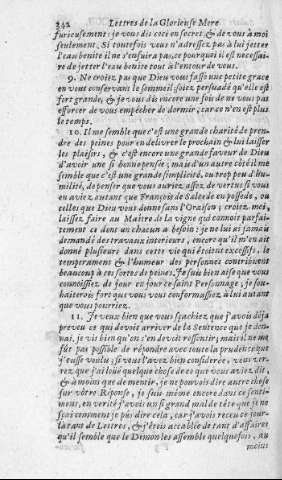 342 Lettres de la Glorieuse Mere
furieusement: je vous dis ceci en secret & de vous à moi
seulement. Si toutefois vous n'adressez pas à lui jetter
l'eau benite il ne s'enfuira pas, ce pourquoi il est necessai-
re de jetter l'eau benite tout à l'entour de vous.
9. Ne croiez pas que Dieu vous fasse une petite grace
en vous conservant le sommeil, soiez persuadé qu'elle est
fort grande, & je vous dis encore une fois de ne vous pas
efforcer de vous empêcher de dormir, car ce n'en est plus
le temps.
10. Il me semble que c'est une grande charité de pren-
dre des peines pour en delivrer le prochain & lui laisser
les plaisirs, & c'est encore une grande faveur de Dieu
d'avoir une si bonne pensée; mais d'un autre côté il me
semble que c'est une grande simplicité, ou trop peu d'hu-
milité, de penser que vous auriez assez de vertu si vous
en aviez autant que François de Salcede en possede, ou
celles que Dieu vous donne sans l'Oraison; croiez moi,
laissez faire au Maître de la vigne qui connoit parfai-
tement ce dont un chacun a besoin: je ne lui ai jamais
demandé des travaux interieurs, encore qu'il m'en ait
donné plusieurs dans cette vie qui étoient excessifs, le
temperament & l'humeur des personnes contribuent
beaucoup à ces sortes de peines. Je suis bien aise que vous
connoissiez de jour en jour ce saint Personnage, je sou-
haiterois fort que vous vous conformassiez à lui autant
que vous pourriez.
11. Je veux bien que vous sçachiez que j'avois déja
preveu ce qui devoit arriver de la Sentence que je don-
nai, je vis bien qu'on s'en devoit ressentir; mais il ne me
fût pas possible de répondre avec toute la prudence que
j'eusse voulu; si vous l'avez bien considerée, vous ver-
rez que j'ai loüé quelque chose de ce que vous aviez dit,
& à moins que de mentir, je ne pouvois dire autre chose
sur vôtre Réponse, je suis même encore dans ce senti-
ment, en verité j'avois un si grand mal de tête que je ne
sçai comment je pûs dire cela, car j'avois receu ce jour-
là tant de Lettres, & j'étois accablée de tant d'affaires
qu'il semble que le Demon les assemble quelquefois, au
moins